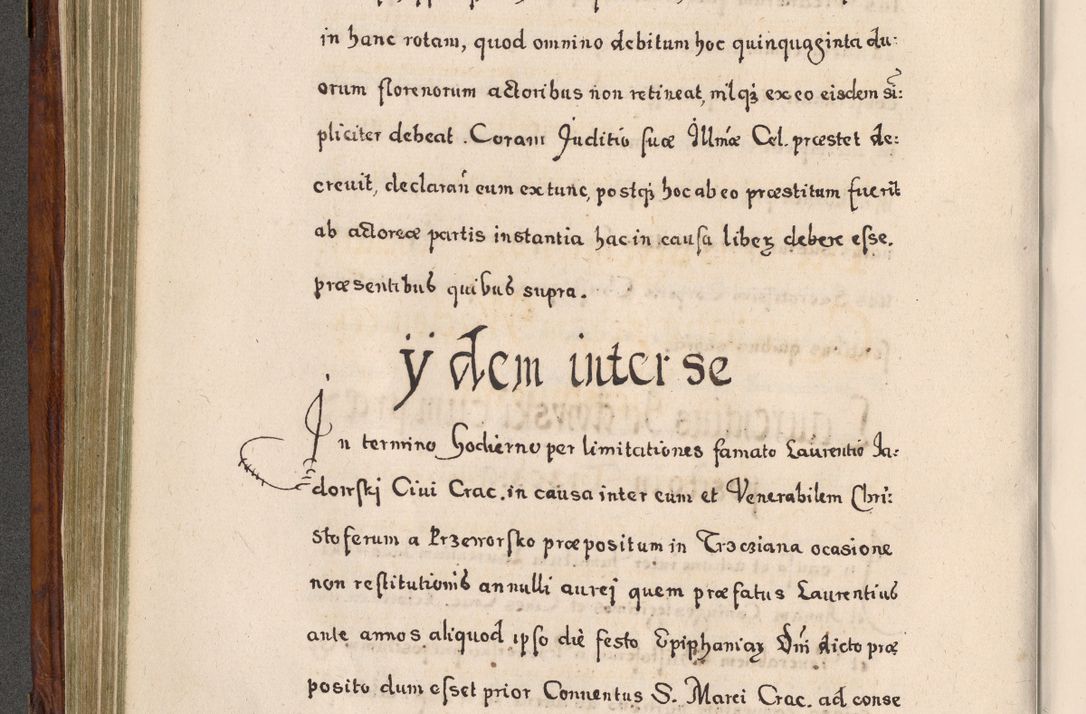 in hanc rotam, quod omnino debitum hoc quinquaginta du:
orum florenorum actoribus non retineat, nilq3 ex eo eisdem sĩ:
pliciter debeat. Coram Juditio suæ Illmæ Cel. præstet de:
creuit, declarañ eum ex tunc, postq3 hoc ab eo præstitum fuerit
ab actoreæ partis instantia hac in causa liberz debere esse.
præsentibus quibus supra.
ÿ dem inter se
In termino hodierno per limitationes famato Laurentio Ja:
dowskj Ciui Crac. in causa inter eum et Venerabilem Chri:
stoferum a Przeworsko præpositum in Trzcziana ocasione
non restitutionis annulli aurej quem præfatus Laurentius
ante annos aliquod ipso die festo Epiphaniaz Dñi dicto præ
posito dum esset prior Conuentus S. Marci Crac. ad conse